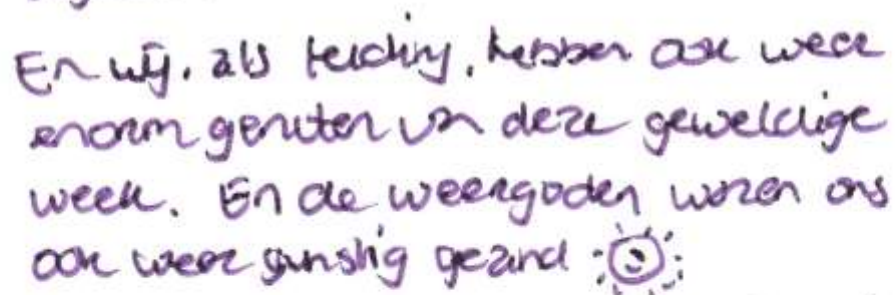 En wij, als leiding, hebben ook weer
enorm genoten van deze geweldige
week. En de weergoden waren ons
ook weer gunstig gezind